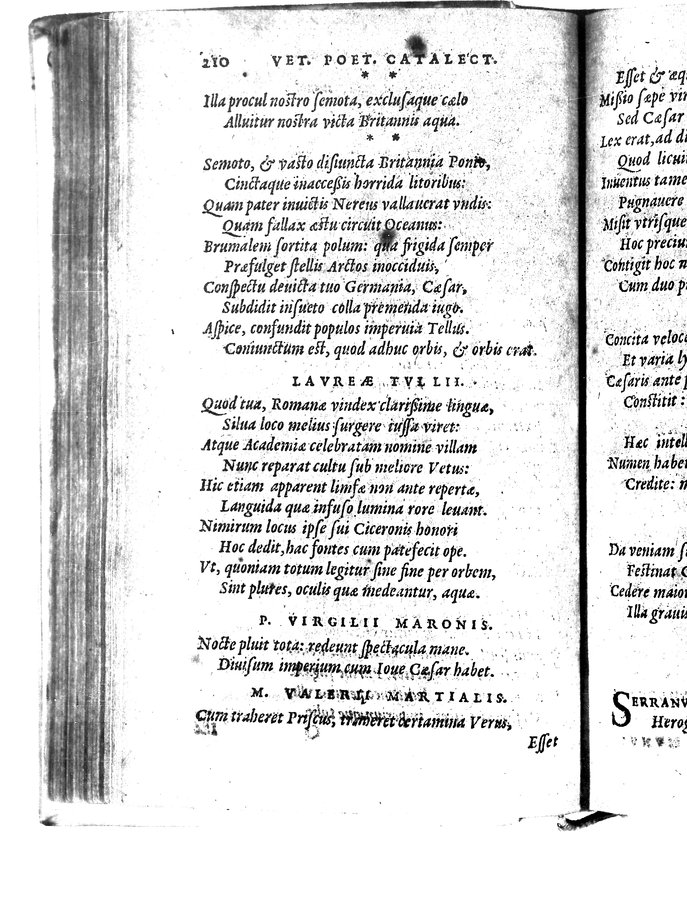 210 VET. POET. CATALECT.
* *
Illa procul nostro semota, exclusaque cælo
Alluitur nostra victa Britannis aqua.
* *
Semoto, & vasto disiuncta Britannia Ponto,
Cinctaque inaccessis horrida litoribus:
Quam pater inuictis Nereus vallauerat vndis:
Quam fallax æstu circuit Oceanus:
Brumalem sortita polum: qua frigida semper
Præfulget stellis Arctos inocciduis,
Conspectu deuicta tuo Germania, Cæsar,
Subdidit insueto colla premenda iugo.
Aspice, confundit populos imperuia Tellus.
Coniunctum est, quod adhuc orbis, & orbis erat.
LAVREÆ TVLLII.
Quod tua, Romanæ vindex clarissime linguæ,
Silua loco melius surgere iussa viret:
Atque Academiæ celebratam nomine villam
Nunc reparat cultu sub meliore Vetus:
Hic etiam apparent limfæ non ante repertæ,
Languida quæ infuso lumina rore leuant.
Nimirum locus ipse sui Ciceronis honori
Hoc dedit, hac fontes cum patefecit ope.
Vt, quoniam totum legitur sine fine per orbem,
Sint plures, oculis quæ medeantur, aquæ.
P. VIRGILII MARONIS.
Nocte pluit tota: redeunt spectacula mane.
Diuisum imperium cum Ioue Cæsar habet.
M. VALERII MARTIALIS.
Cum traheret Priscus, traheret certamina Verus,
Esset
Esset & æq
Missio sæpe vir
Sed Cæsar
Lex erat, ad di
Quod licui
Inuentus tame
Pugnauere
Misit vtrisque
Hoc preciu
Contigit hoc n
Cum duo p
Concita veloc
Et varia ly
Cæsaris ante p
Constitit:
Hæc intell
Numen habet
Credite: n
Da veniam s
Festinat C
Cedere maior
Illa grauis
SERRANV
Herog